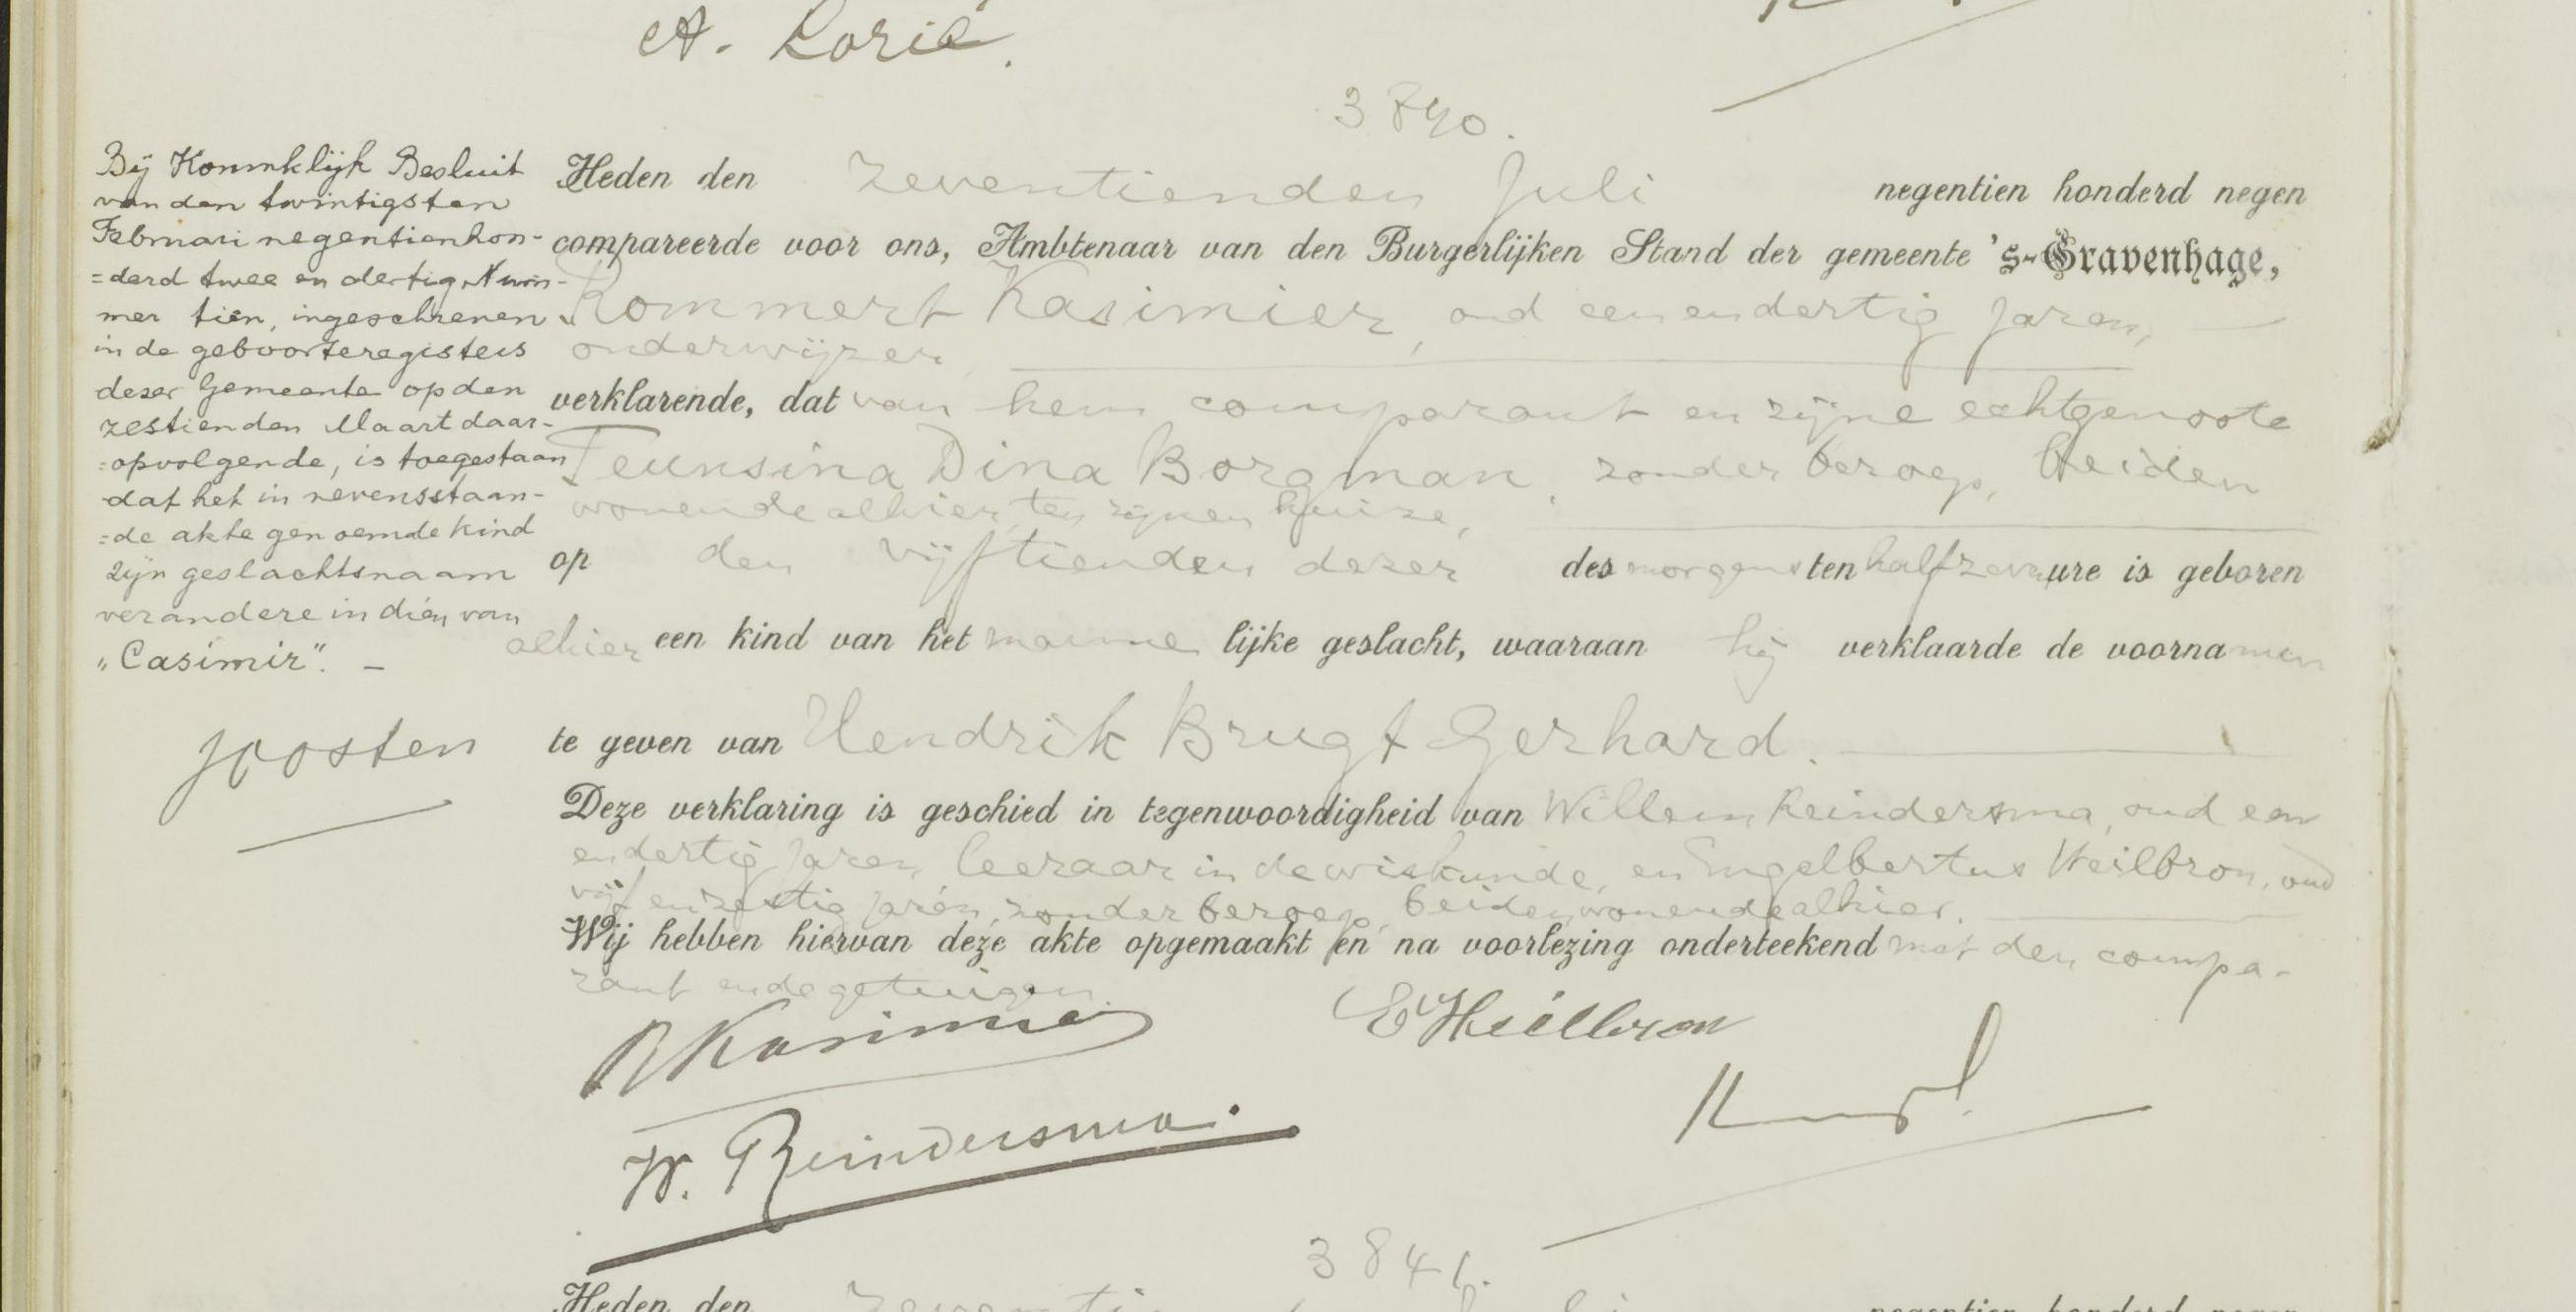 A. Lorié.
3840.
Bij Koninklijk Besluit
van den twintigsten
Februari negentienhon-
=derd twee en dertig, Num-
mer tien, ingeschreven
in de geboorteregisters
dezer Gemeente op den
zestienden Maart daar-
=opvolgende, is toegestaan
dat het in nevensstaan-
=de akte genoemde kind
zijn geslachtsnaam
verandere in dien van
„Casimir". —
Joosten
Heden den zeventienden Juli negentien honderd negen
compareerde voor ons, Ambtenaar van den Burgerlijken Stand der gemeente 's-Gravenhage,
Rommert Kasimier, oud een en dertig jaren,
onderwijzer
verklarende, dat van hem comparant en zijne echtgenoote
Teunsina Dina Borgman, zonder beroep, beiden
wonende alhier, ten zijnen huize,
op den vijftienden dezer des morgens ten half zeven ure is geboren
alhier een kind van het manne lijke geslacht, waaraan hij verklaarde de voornamen
te geven van Hendrik Brugt Gerhard.
Deze verklaring is geschied in tegenwoordigheid van Willem Reindersma, oud een
en dertig jaren, leeraar in de wiskunde, en Engelbertus Heilbron, oud
vijf en zestig jaren, zonder beroep, beiden wonende alhier.
Wij hebben hiervan deze akte opgemaakt en na voorlezing onderteekend met den compa-
rant en de getuigen.
R Kasimier
E Heilbron
W. Reindersma.
3841.
Heden den negentien honderd negen